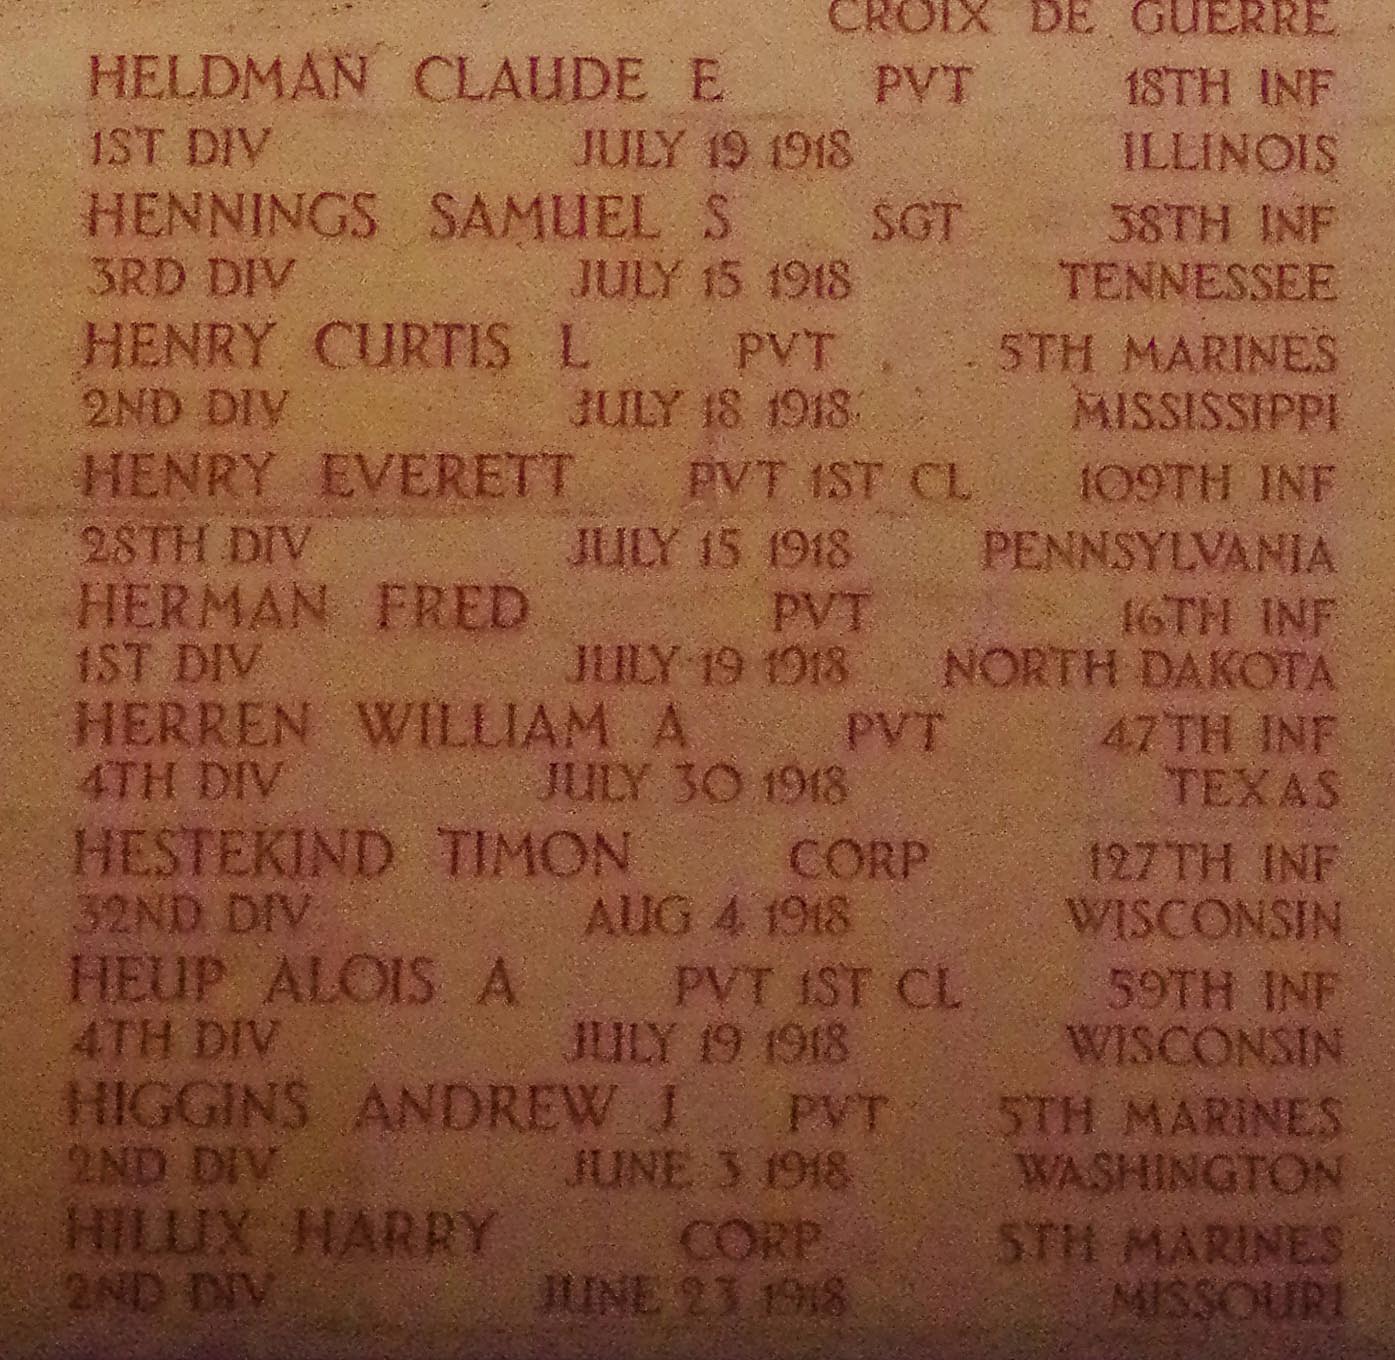 CROIX DE GUERRE
HELDMAN CLAUDE E PVT 18TH INF
1ST DIV JULY 19 1918 ILLINOIS
HENNINGS SAMUEL S SGT 38TH INF
3RD DIV JULY 15 1918 TENNESSEE
HENRY CURTIS L PVT 5TH MARINES
2ND DIV JULY 18 1918 MISSISSIPPI
HENRY EVERETT PVT 1ST CL 109TH INF
28TH DIV JULY 15 1918 PENNSYLVANIA
HERMAN FRED PVT 16TH INF
1ST DIV JULY 19 1918 NORTH DAKOTA
HERREN WILLIAM A PVT 47TH INF
4TH DIV JULY 30 1918 TEXAS
HESTEKIND TIMON CORP 127TH INF
32ND DIV AUG 4 1918 WISCONSIN
HEUP ALOIS A PVT 1ST CL 59TH INF
4TH DIV JULY 19 1918 WISCONSIN
HIGGINS ANDREW J PVT 5TH MARINES
2ND DIV JUNE 3 1918 WASHINGTON
HILLIX HARRY CORP 5TH MARINES
2ND DIV JUNE 23 1918 MISSOURI